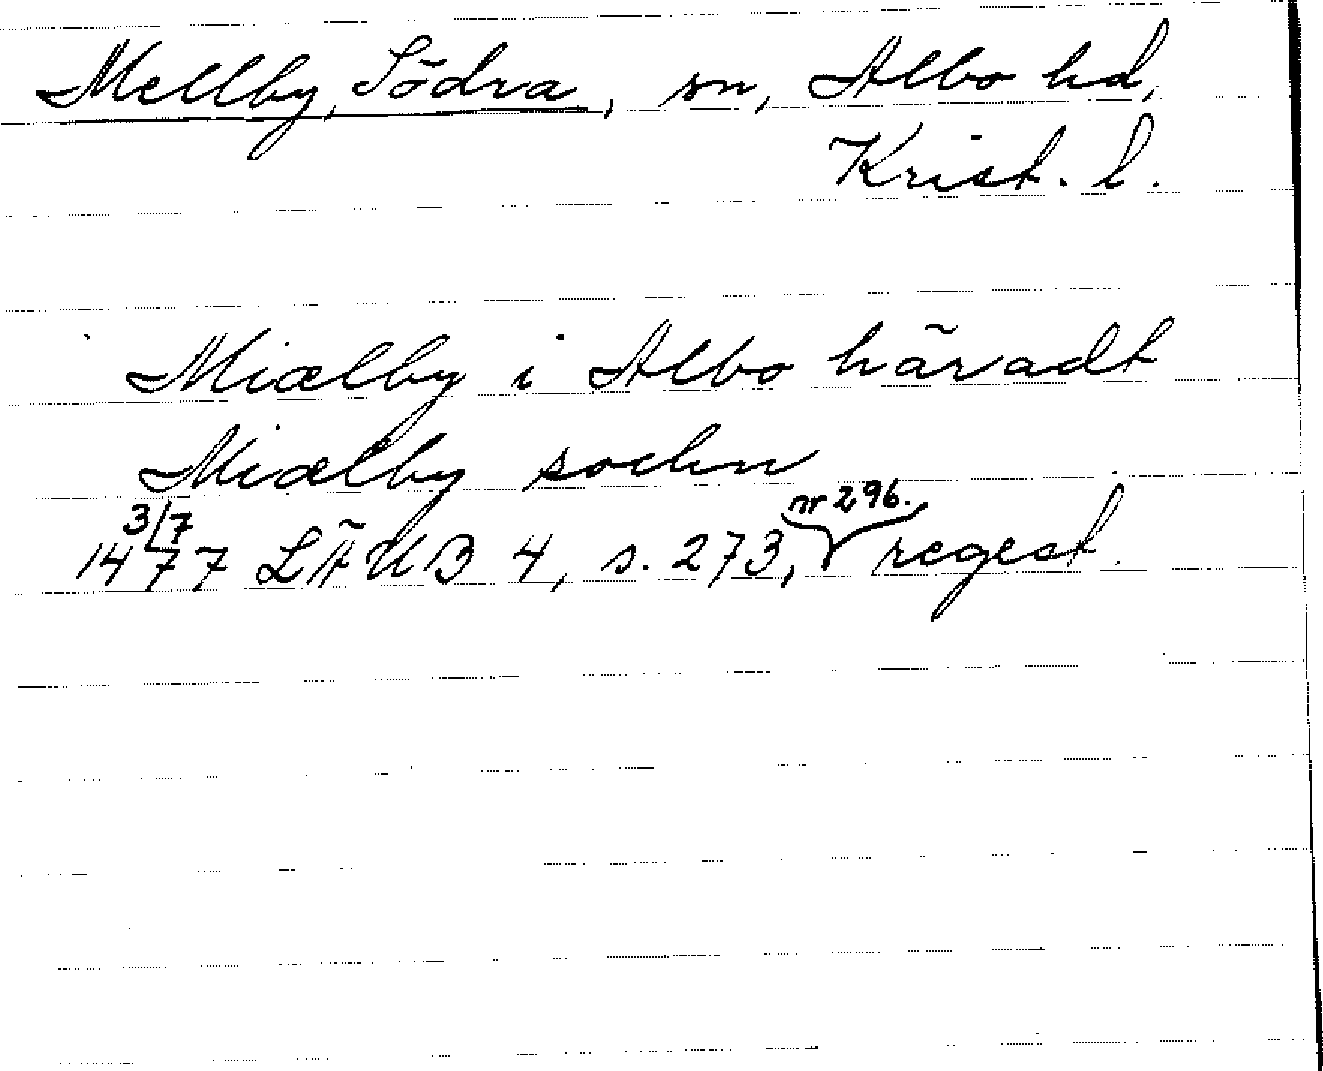 Mellby, Södra, sn, Albo hd,
Krist. l.
Miælby i Albo häradt
Miælby sochn
3/7 nr 296.
1477 LÄUB 4, s. 273, regest.